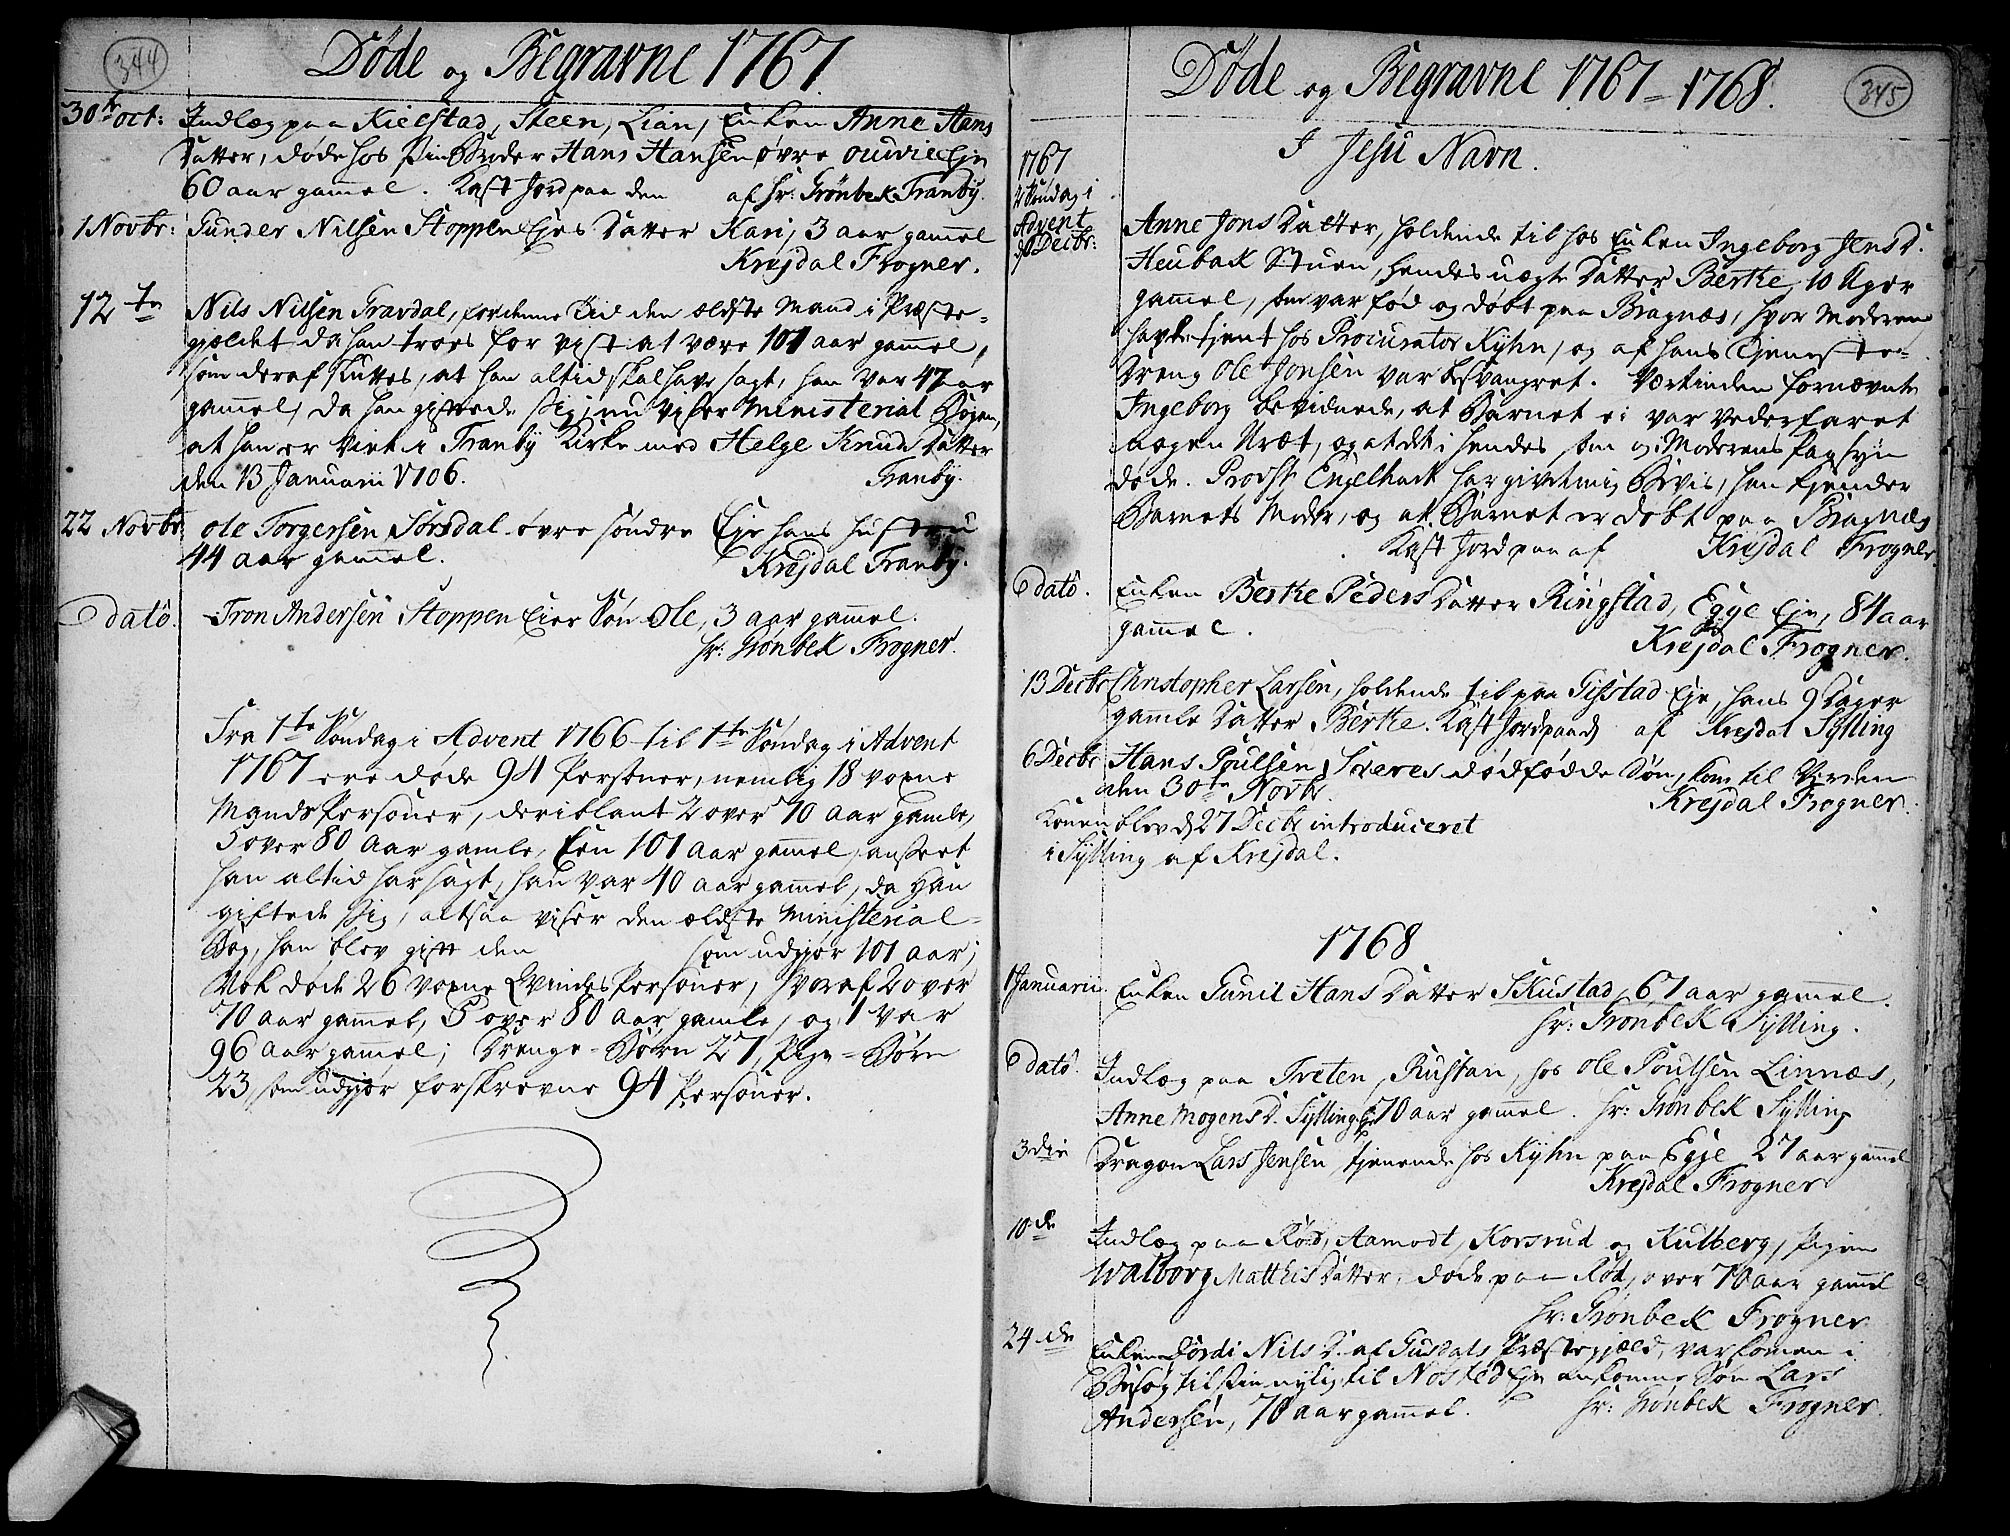 344
Døde og Begravne 1767.
30te oct: Indlæg paa Kielstad, Steen, Lian, Enken Anne Hans
Datter, døde hos sin Broder Hans Hansen øvre Eje
60 aar gamel. Kast Jord paa den af hr: Grönbek Tranby.
1 Novbr: Gunder Nilsen Stoppen Ejes Datter Kari, 3 aar gammel
Krejdal Frogner.
12te Nils Nilsen Gravdal, for denne Tid den ældste Mand i Præste-
gjeldet da han troes for vist at være 101 aar gamel,
som deraf sluttes, at han altid skal have sagt, han var 47 aar
gammel, da han giftede sig; nu viser Ministerial Bogen,
at han er viet i Tranby Kirke med Helge Knuds Datter
den 13 Januarii 1706. Tranby.
22 Novbr Ole Torgersen Sörsdal övre söndre Eje hans hustru
44 aar gammel. Krejdal Tranby.
dato. Tron Andersen Stoppen Eier Søn Ole, 3 aar gammel.
hr: Grönbek Frogner.
Fra 1te Søndag i Advent 1766 til 1te Søndag i Advent
1767 ere døde 94 Personer, nemlig 18 voxne
Mands Personer, deriblant 2 over 70 aar gamle,
3 over 80 aar gamle, Een 101 aar gamel, anseet
han altid har sagt, han var 40 aar gamel, da Han
giftede sig, altsaa viser den ældste Ministerial-
Bog, han blev gift den som udgjør 101 aar;
Nok døde 26 voxne Qvindes Personer, hvoraf 2 over
70 aar gammel, 5 over 80 aar gamle, og 1 var
96 aar gammel; Drenge-Børn 27, Pige-Børn
23, som udgjør forskrevne 94 Personer.
345
Døde og Begravne 1767-1768.
I Jesu Navn.
1767
Søndag i
Advent
Decbr:
Anne Jons Datter, holdende til hos Enken Ingeborg Jens D.
Heubak Stuen, hendes uægte Datter Berthe, 10 Uger
gammel, som var fød og døbt paa Bragnæs, hvor Moderen
havde tjent hos Procurator Kyhn, og af hans Tjeneste-
Dreng Ole Jonsen var besvangret. Værtinden fornævnte
Ingeborg bevidnede, at Barnet ei var vederfaret
nogen Uræt, og at det i hendes som og Moderens Paasyn
døde. Provst Engelhart har givet mig Bevis, han kjender
Barnets Moder, og at Barnet er døbt paa Bragnæs
Kast Jord paa af Krejdal Frogner.
dato. Enken Berthe Peders Datter Ringstad, Egge Eje, 84 aar
gammel. Krejdal Frogner.
13 Decbr Christopher Larsen, holdende til paa Gisstad Eje, hans 9 Dager
gamle Datter Berthe. Kast Jord paa af Krejdal Sylling
6 Decbr Hans Poulsen Sveres dødfødde Søn, kom til Verden
den 30te Novbr. Krejdal Frogner.
Konen blev d 27 Decbr introduceret
i Sylling af Krejdal.
1768
1 Januarii. Enken Gunil Hans Datter Skustad, 67 aar gammel.
hr: Grönbek Sylling.
dato. Indlæg paa Treten, Rustan, hos Ole Poulsen Linnæs,
Anne Mogens D. Sylling Eje 70 aar gammel. hr: Grönbek Sylling
3die Dragon Lars Jensen, tjenende hos Kyhn paa Egge 27 aar gammel
Krejdal Frogner
10de Indlæg paa Rød, Aamodt, Korsrud og Kulberg, Pigen
Walborg Matthis Datter, døde paa Rød, over 70 aar gammel
hr: Grönbek Frogner
24de Enken Jørdi Nils D. af Gusdals Præstegjæld, var kommen i
Besøg til sin nylig til Nøsted Eje ankomne Søn Lars
Andersen, 70 aar gammel. hr: Grönbek Frogner.